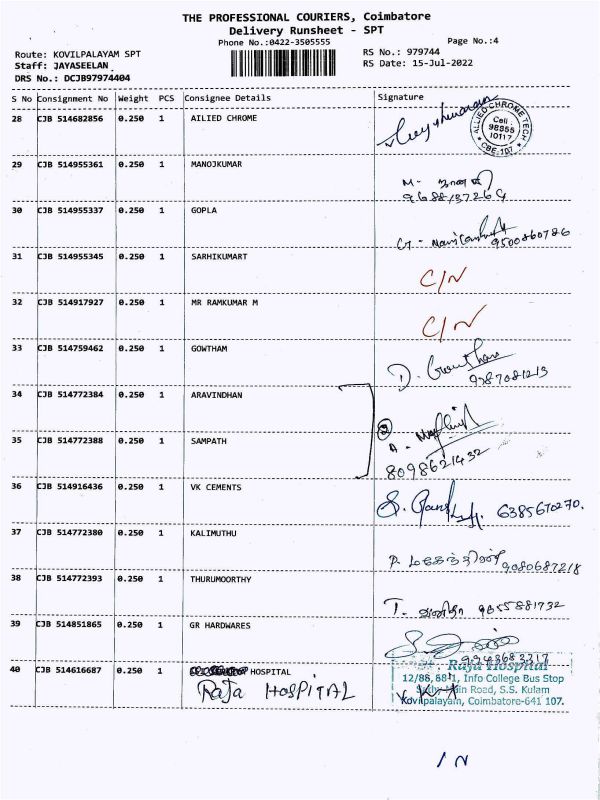 THE PROFESSIONAL COURIERS, Coimbatore
Delivery Runsheet - SPT
Phone No.:0422-3505555 Page No.:4
Route: KOVILPALAYAM SPT RS No.: 979744
Staff: JAYASEELAN RS Date: 15-Jul-2022
DRS No.: DCJB97974404
S No Consignment No Weight PCS Consignee Details Signature
28 CJB 514682856 0.250 1 AILIED CHROME
ALLIED CHROME TECH
Cell :
98355
10117
CBE-107
29 CJB 514955361 0.250 1 MANOJKUMAR
M-
30 CJB 514955337 0.250 1 GOPLA
G - 9500860786
31 CJB 514955345 0.250 1 SARHIKUMART C/N
32 CJB 514917927 0.250 1 MR RAMKUMAR M C/N
33 CJB 514759462 0.250 1 GOWTHAM D. Gowtham
9387081213
34 CJB 514772384 0.250 1 ARAVINDHAN
2
A -
35 CJB 514772388 0.250 1 SAMPATH 8098621432
36 CJB 514916436 0.250 1 VK CEMENTS S. 6385670270.
37 CJB 514772380 0.250 1 KALIMUTHU
P. மகேந்திரன் 9080687218
38 CJB 514772393 0.250 1 THURUMOORTHY
T. 9655881732
39 CJB 514851865 0.250 1 GR HARDWARES
40 CJB 514616687 0.250 1 HOSPITAL Raja Hospital
RAJA HOSPITAL
12/86, 88/1, Info College Bus Stop
Main Road, S.S. Kulam
Kovilpalayam, Coimbatore-641 107.
/ N